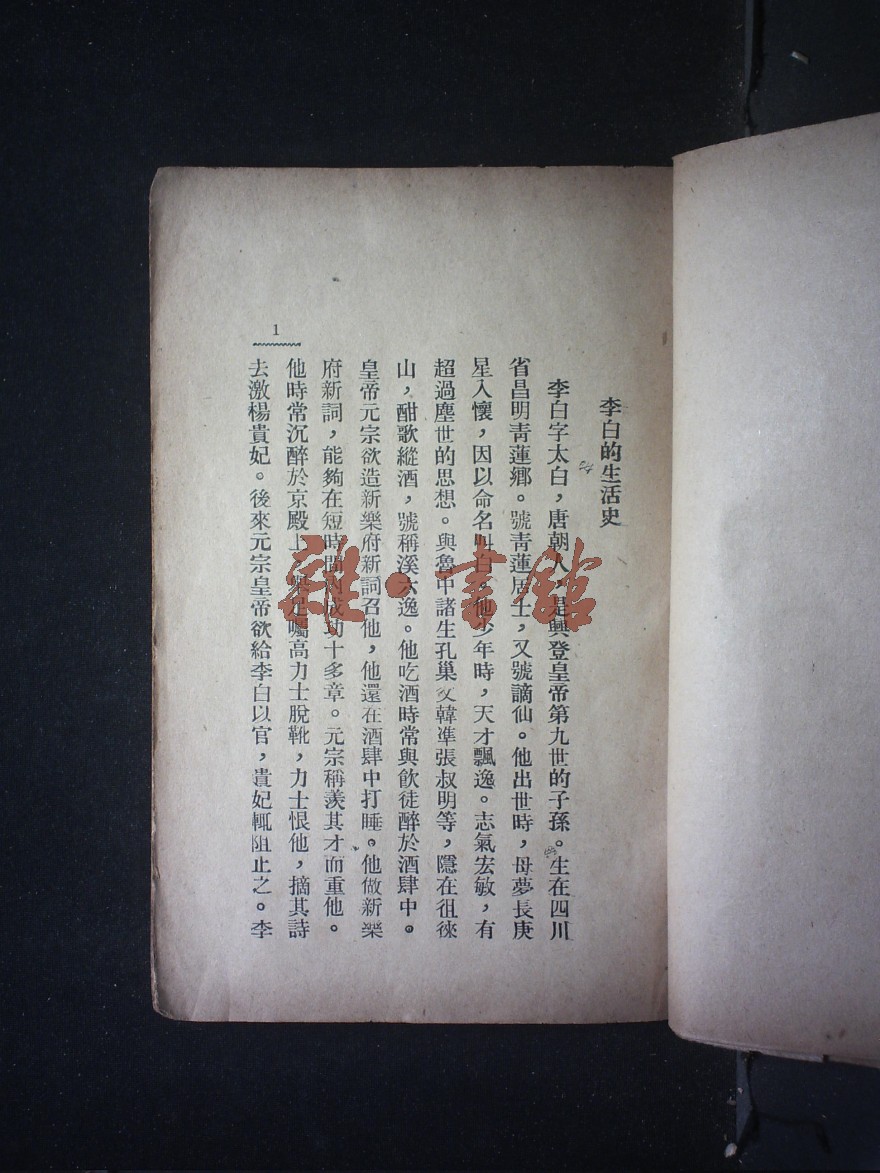 李白的生活史
李白字太白，唐朝人，是興登皇帝第九世的子孫。生在四川
省昌明青蓮鄉。號青蓮居士，又號謫仙。他出世時，母夢長庚
星入懷，因以命名叫白。他少年時，天才飄逸。志氣宏敏，有
超過塵世的思想。與魯中諸生孔巢父韓準張叔明等，隱在徂徠
山，酣歌縱酒，號稱溪六逸。他吃酒時常與飲徒醉於酒肆中。
皇帝元宗欲造新樂府新詞召他，他還在酒肆中打睡。他做新樂
府新詞，能夠在短時間內成功十多章。元宗稱羨其才而重他。
他時常沉醉於京殿上，舉足囑高力士脫靴，力士恨他，摘其詩
去激楊貴妃。後來元宗皇帝欲給李白以官，貴妃輒阻止之。李
1
雜·書館